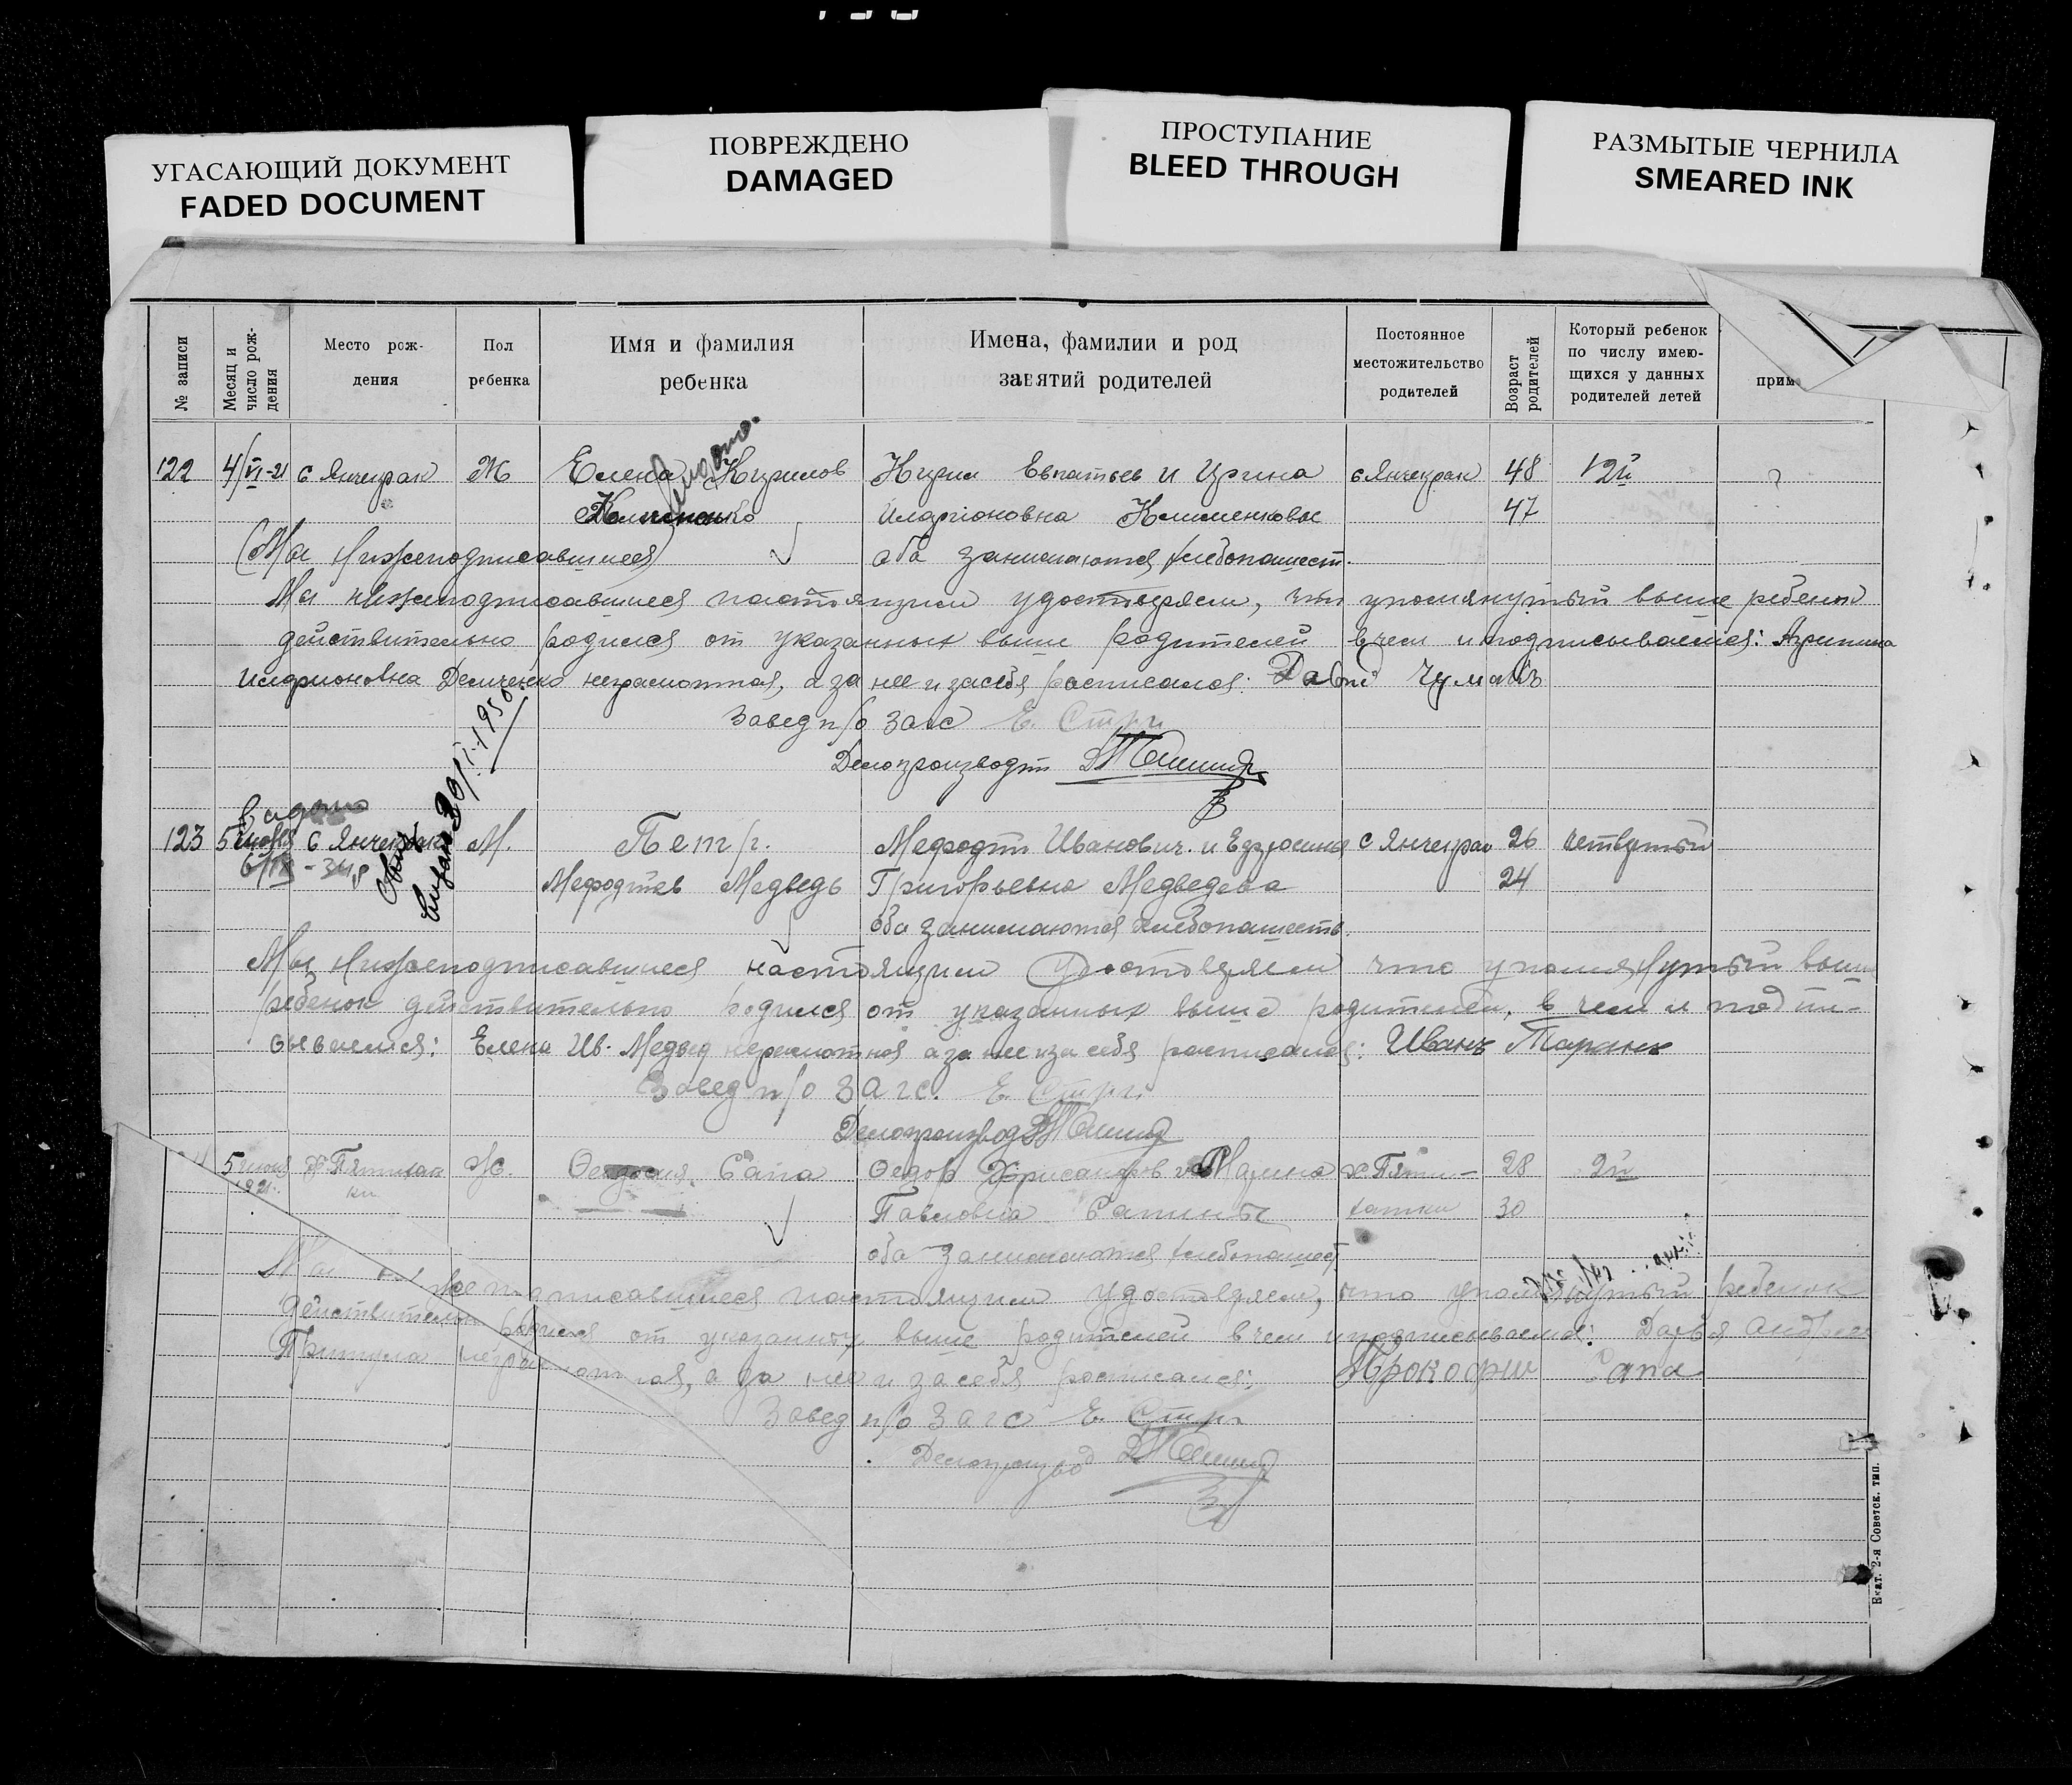 УГАСАЮЩИЙ ДОКУМЕНТ
FADED DOCUMENT
ПОВРЕЖДЕНО
DAMAGED
ПРОСТУПАНИЕ
BLEED THROUGH
РАЗМЫТЫЕ ЧЕРНИЛА
SMEARED INK
№ записи
Месяц и число рождения
Место рож-
дения
Пол
ребенка
Имя и фамилия
ребенка
Имена, фамилии и род
занятий родителей
Постоянное
местожительство
родителей
Возраст
родителей
Который ребенок
по числу имею-
щихся у данных
родителей детей
прим
122 4/VI-21 с Янчекрак Ж Елена Кирилов Кирил Евпатьев и Ирина с Янчекрак 48 12й
Иларионовна Клименковы 47
(Мы Нижеподписавшиеся) оба занимаются хлебопашест.
Мы нижеподписавшиеся настоящим удостоверяем, что упомянутый выше ребенок
действительно родился от указанных выше родителей в чем и подписываемся:
Иларионовна Демченко неграмотная, а за нее и за себя расписался: Давид Чумакъ
Завед п/о Загс Е.
Делопроизводит
Видано
123 5 июня с Янчекрак М. Петр. Мефодий Иванович. и Ефросинья с Янчекрак 26 четвертый
Мефодиев Медведь Григорьевна Медведева 24
оба занимаются хлебопашеств.
Мы Нижеподписавшиеся настоящим Удостоверяем что упомянутый выше
ребенок действительно родился от указанных выше родителей, в чем и подпи-
сываемся: Елена Ив. Медвед неграмотная а за нее и за себя расписался: Иванъ Таранъ
Завед п/о Загс. Е.
Делопроизвод
5 июня х. Пятихат Ж. Федосия Сапа Федор Хрисанфов и Марина х. Пяти- 28 2й
1921 ки Павловна Сапины хатки 30
оба занимаются хлебопашест
Мы подписавшиеся настоящим удостоверяем, что упомянутый ребенок
действительно родился от указанных выше родителей в чем и подписываемся: Дарья
неграмотная, а за нее и за себя расписался: Прокофий Сапа
Завед п/о Загс Е.
Делопроизвод
Екат. 2-я Советск. тип.